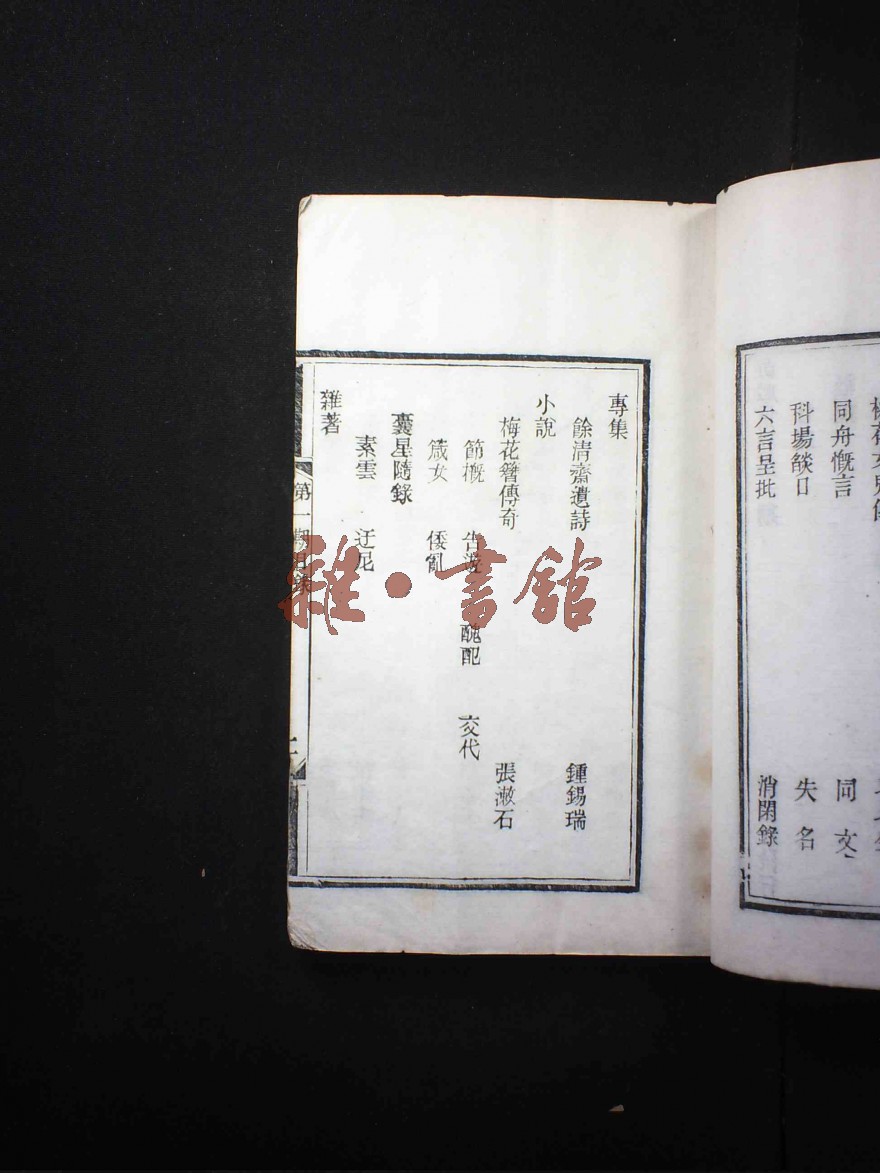 同舟慨言　同文
科場燄口　失名
六言呈批　消閑錄
專集
餘清齋遺詩　鍾錫瑞
小說
梅花簪傳奇　張漱石
節概　告遊　醜配　交代
箴女　倭亂
囊星隨錄
素雲　迂尼
雜著
第一期目錄
雜·書館